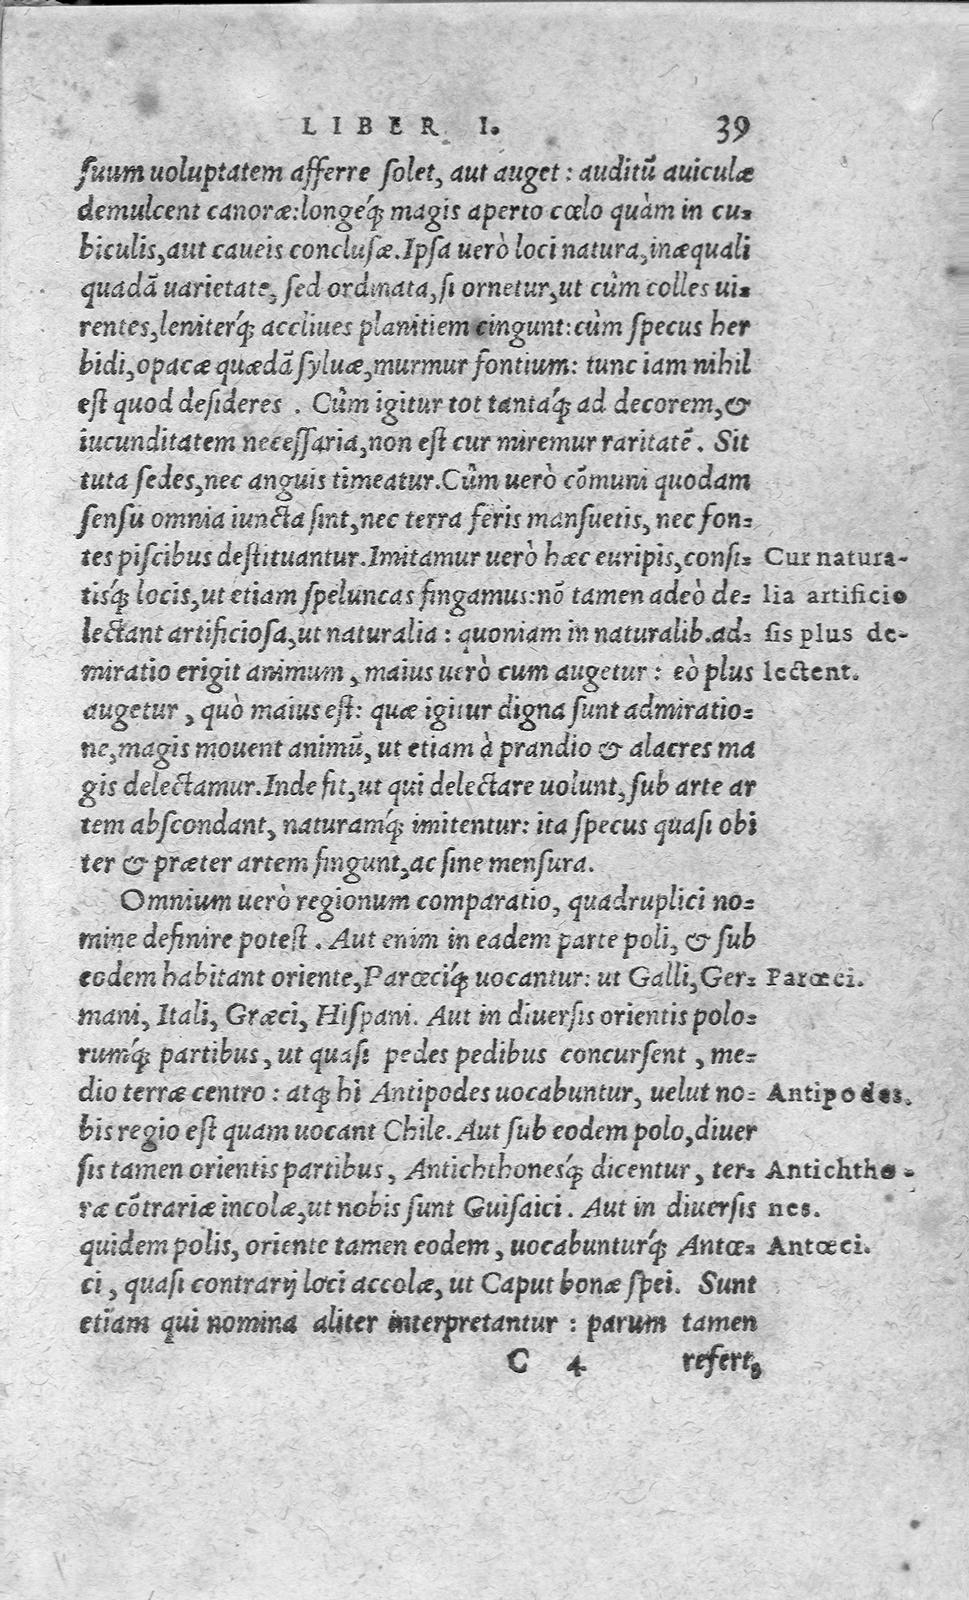 LIBER I. 39
suum uoluptatem afferre solet, aut auget : auditū auiculæ
demulcent canoræ:longeq́; magis aperto cœlo quàm in cu-
biculis,aut caueis conclusæ.Ipsa uerò loci natura,inæquali
quadā uarietate, sed ordinata,si ornetur,ut cûm colles ui-
rentes,leniterq́; accliues planitiem cingunt:cùm specus her
bidi,opacæ quædā syluæ,murmur fontium: tunc iam nihil
est quod desideres . Cûm igitur tot tantaq́; ad decorem,&
iucunditatem necessaria,non est cur miremur raritatē. Sit
tuta sedes,nec anguis timeatur.Cûm uerò cōmuni quodam
sensu omnia iuncta sint,nec terra feris mansuetis, nec fon-
tes piscibus destituantur.Imitamur uerò hæc euripis,consi- Cur natura-
tisq́; locis,ut etiam speluncas fingamus:nō tamen adeò de- lia artificio
lectant artificiosa,ut naturalia : quoniam in naturalib.ad- sis plus de-
miratio erigit animum, maius uerò cum augetur : eò plus lectent.
augetur, quò maius est: quæ igitur digna sunt admiratio-
ne,magis mouent animū, ut etiam à prandio & alacres ma
gis delectamur.Inde fit,ut qui delectare uolunt, sub arte ar
tem abscondant, naturamq́; imitentur: ita specus quasi obi
ter & præter artem fingunt,ac sine mensura.
Omnium uerò regionum comparatio, quadruplici no-
mine definire potest. Aut enim in eadem parte poli, & sub
eodem habitant oriente,Parœciq́; uocantur: ut Galli,Ger- Parœci.
mani, Itali, Græci, Hispani. Aut in diuersis orientis polo-
rumq́; partibus, ut quasi pedes pedibus concursent, me-
dio terræ centro : atq; hi Antipodes uocabuntur, uelut no- Antipodes.
bis regio est quam uocant Chile. Aut sub eodem polo,diuer
sis tamen orientis partibus, Antichthonesq́; dicentur, ter- Antichtho-
ræ cōtrariæ incolæ,ut nobis sunt Guisaici. Aut in diuersis nes.
quidem polis, oriente tamen eodem, uocabunturq́; Antœ- Antœci.
ci, quasi contrarij loci accolæ, ut Caput bonæ spei. Sunt
etiam qui nomina aliter interpretantur : parum tamen
C 4 refert,